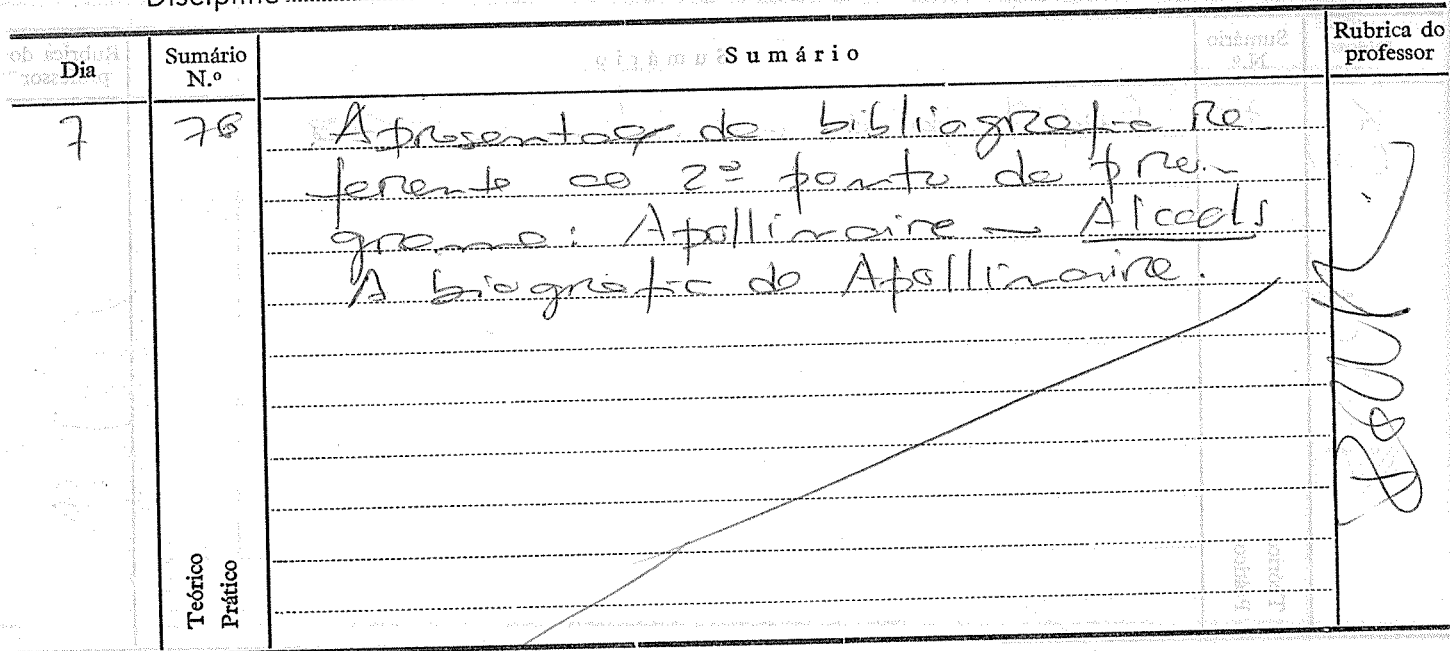 Disciplina
Dia
Sumário N.º
Sumário
Rubrica do professor
7
Apresentação de bibliografia re-
ferente ao 2º ponto do pro-
grama: Apollinaire – Alcools
A biografia de Apollinaire.
Teórico
Prático